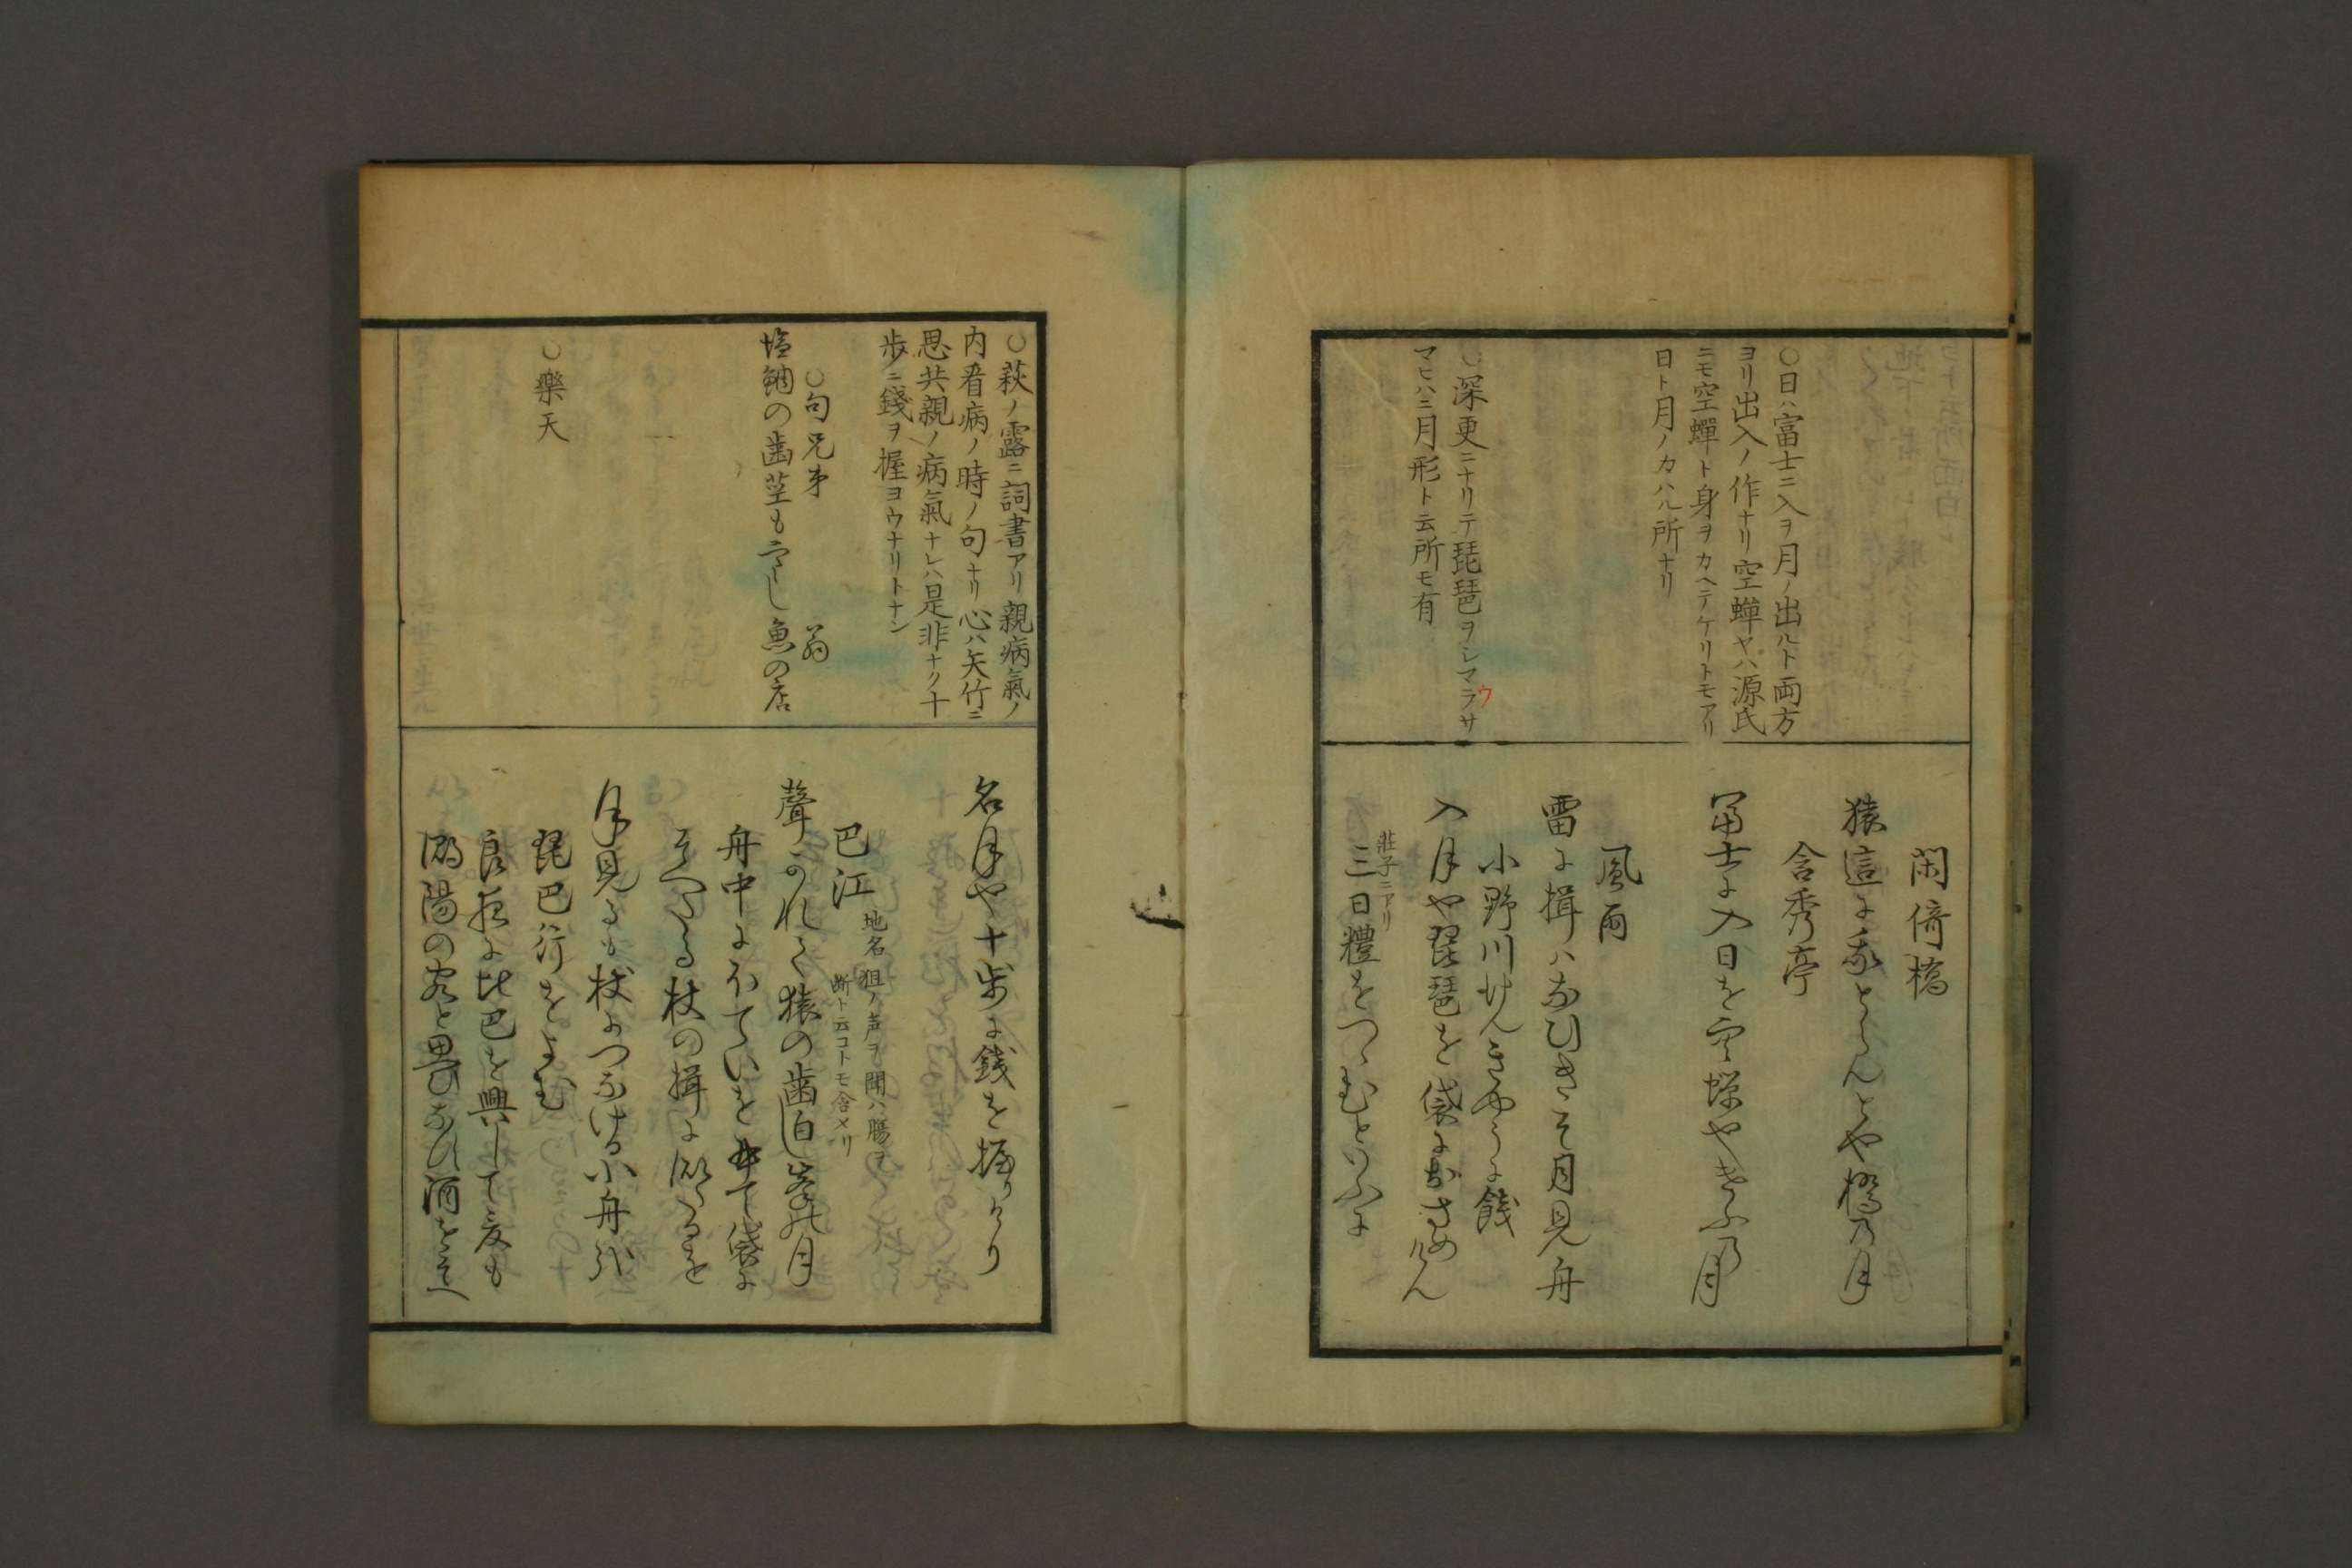 〇日ハ富士ニ入ヲ月ノ出ルト両方
ヨリ出入ノ作ナリ空蟬ヤハ源氏
ニモ空蟬ト身ヲカヘテケリトモアリ
日ト月ノカハル所ナリ
〇深更ニナリテ琵琶ヲシマラサ
ウ
マヒハ三月形ト云所モ有
閑倚橋
猿這に我とらんとや橋乃月
含秀亭
冨士に入日を空蟬やけふの月
風雨
雷に揖ハなひきそ月見舟
小野川けんきやうに餞
入月や琵琶を袋におさめけん
荘子ニアリ
三日糧をつゝむといふに
〇萩ノ露ニ詞書アリ親病氣ノ
内看病ノ時ノ句ナリ心ハ矢竹ニ
思共親ノ病氣ナレハ是非ナク十
歩ニ錢ヲ握ヨウナリトナン
〇句兄弟
翁
塩鯛の歯茎も寒し魚の店
〇樂天
名月や十歩に銭を握りけり
巴江
地名 狙ノ声ヲ聞ハ腸ヲ
断ト云コトモ含メリ
聲かれて猿の歯白し峯の月
舟中にかてといを 袋に
そへたる杖の揖に似たるを
月見るも杖につなける小舟哉
琵巴行をよむ
良夜に比巴を興して友も
潯陽の客と思ひなひ酒をそへ